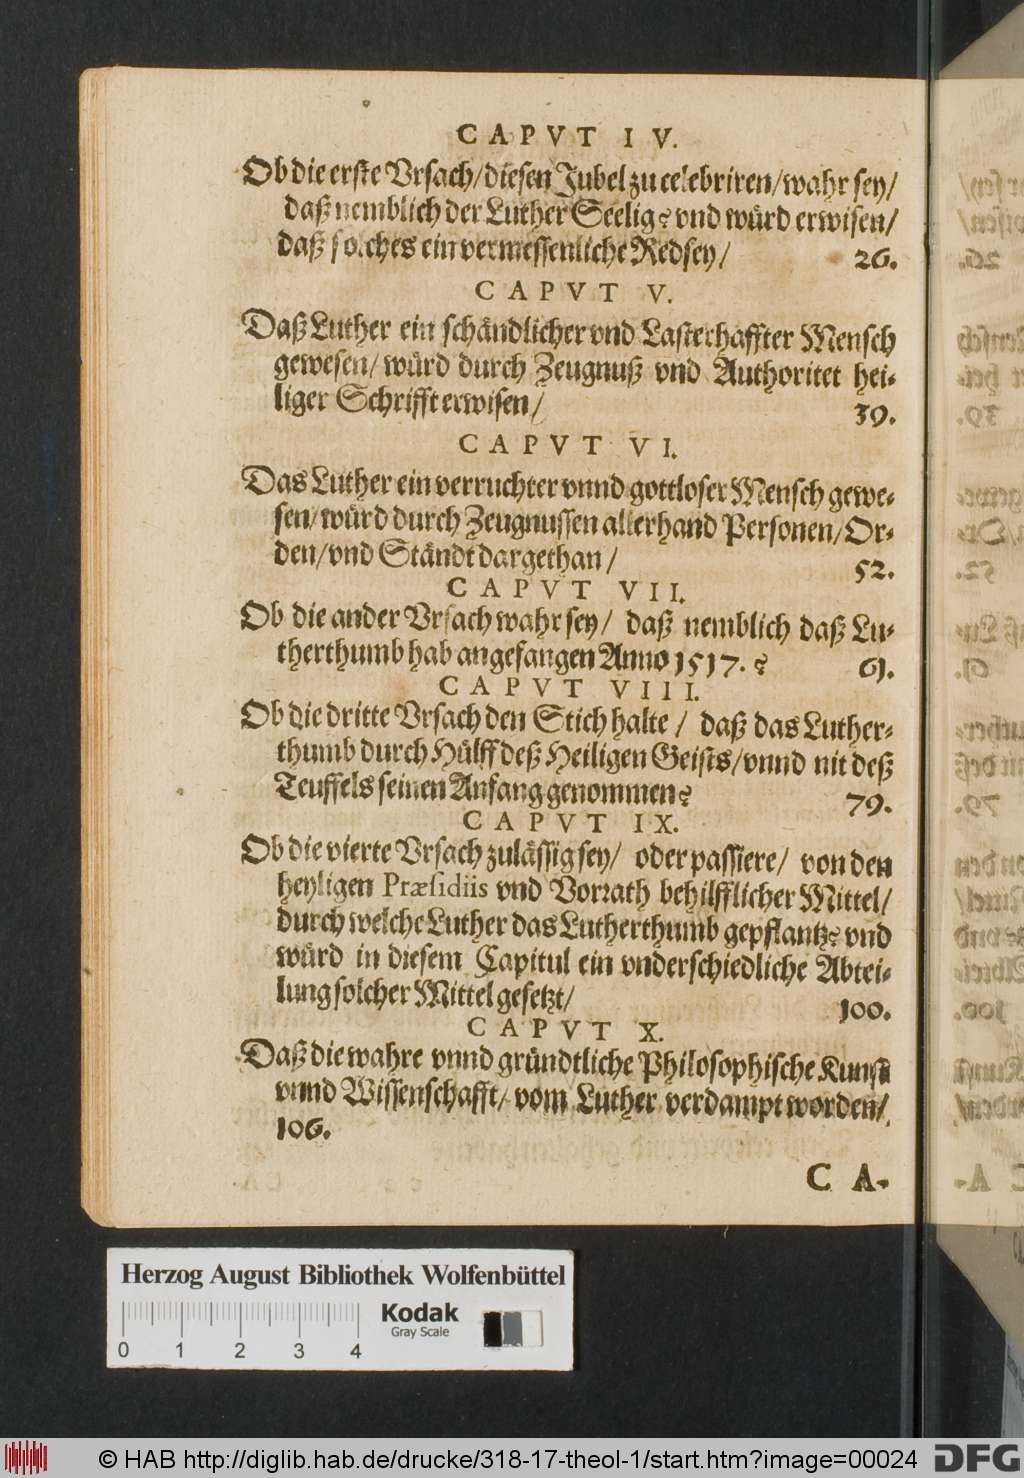 CAPVT IV.
Ob die erste Vrsach/diesen Jubel zu celebriren/wahr sey/
daß nemblich der Luther Seelig? vnd würd erwisen/
daß solches ein vermessenliche Red sey/ 26.
CAPVT V.
Daß Luther ein schändlicher vnd Lasterhaffter Mensch
gewesen/ würd durch Zeugnuß vnd Authoritet hei-
liger Schrifft erwisen/ 39.
CAPVT VI.
Das Luther ein verruchter vnnd gottloser Mensch gewe-
sen/würd durch Zeugnussen allerhand Personen/Or-
den/vnd Ständt dargethan/ 52.
CAPVT VII.
Ob die ander Vrsach wahr sey/ daß nemblich daß Lu-
therthumb hab angefangen Anno 1517.? 61.
CAPVT VIII.
Ob die dritte Vrsach den Stich halte/ daß das Luther-
thumb durch Hülff deß Heiligen Geists/vnnd nit deß
Teuffels seinen Anfang genommen? 79.
CAPVT IX.
Ob die vierte Vrsach zulässig sey/ oder passiere/ von den
heyligen Præsidiis vnd Vorrath behilfflicher Mittel/
durch welche Luther das Lutherthumb gepflantz? vnd
würd in diesem Capitul ein vnderschiedliche Abtei-
lung solcher Mittel gesetzt/ 100.
CAPVT X.
Daß die wahre vnnd gründtliche Philosophische Kunst
vnnd Wissenschafft/ vom Luther verdampt worden/
106.
CA-
Herzog August Bibliothek Wolfenbüttel
Kodak
Gray Scale
0 1 2 3 4
© HAB http://diglib.hab.de/drucke/318-17-theol-1/start.htm?image=00024
DFG